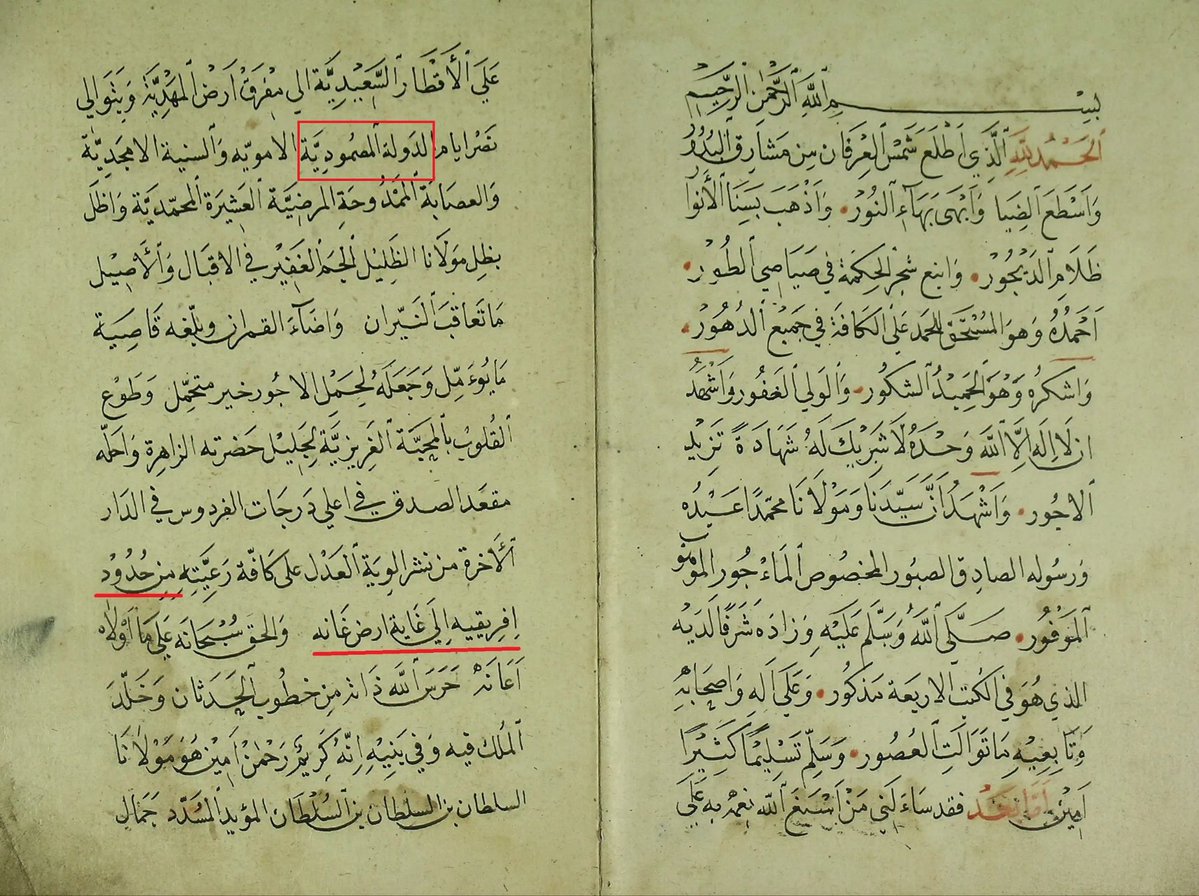 بسم الله الرحمن الرحيم
الحمد لله الذي اطلع شمس العرفان من مشارق البدور
واسطع الضيا وابهى بهاء النور. واذهب بسنا الأنوا
ظلام الديجور. واينع شجر الحكمة في صياصي الطور.
احمده وهو المستحق للحمد على الكافة في جميع الدهور.
واشكره وهو الحميد الشكور. والولي الغفور واشهد
ان لا اله الا الله وحده لا شريك له شهادة تزيد
الاجور. واشهد ان سيدنا ومولانا محمدا عبده
ورسوله الصادق الصبور المخصوص
الموفور. صلى الله وسلم عليه وزاده شرفا لديه
الذي هو في الكتب الاربعة مذكور. وعلى اله واصحابه
وتابعيه ما توالت العصور. وسلم تسليما كثيرا
امين اما بعد فقد ساءلني من اسبغ الله نعمه به على
على الأقطار السعيدية الي مفرق ارض المهدية ويتوالي
نصر ايام الدولة المصمودية الامويه والسنية الامجدية
والعصابة الممدوحة المرضية العشيرة المحمدية واظل
بظل مولانا الظليل الجم الغفير في الاقبال والأصيل
ما تعاقب النيران واضاء القمران وبلغه قاصية
ما يؤمل وجعله لحمل الاجور خير متحمل وطوع
القلوب بالمحبة الغريزية لجليل حضرته الزاهرة واحله
مقعد الصدق في اعلي درجات الفردوس في الدار
الأخرة من نشر الوية العدل على كافة رعيته من حدود
افريقيه الي غاية ارض غانه والحق سبحانه علي ما اولاه
اعانه حرس الله ذاته من خطوب الحدثان وخلد
الملك فيه وفي بنيه انه كريم رحمن امين هو مولانا
السلطان بن السلطان بن السلطان المؤيد المسدد جمال